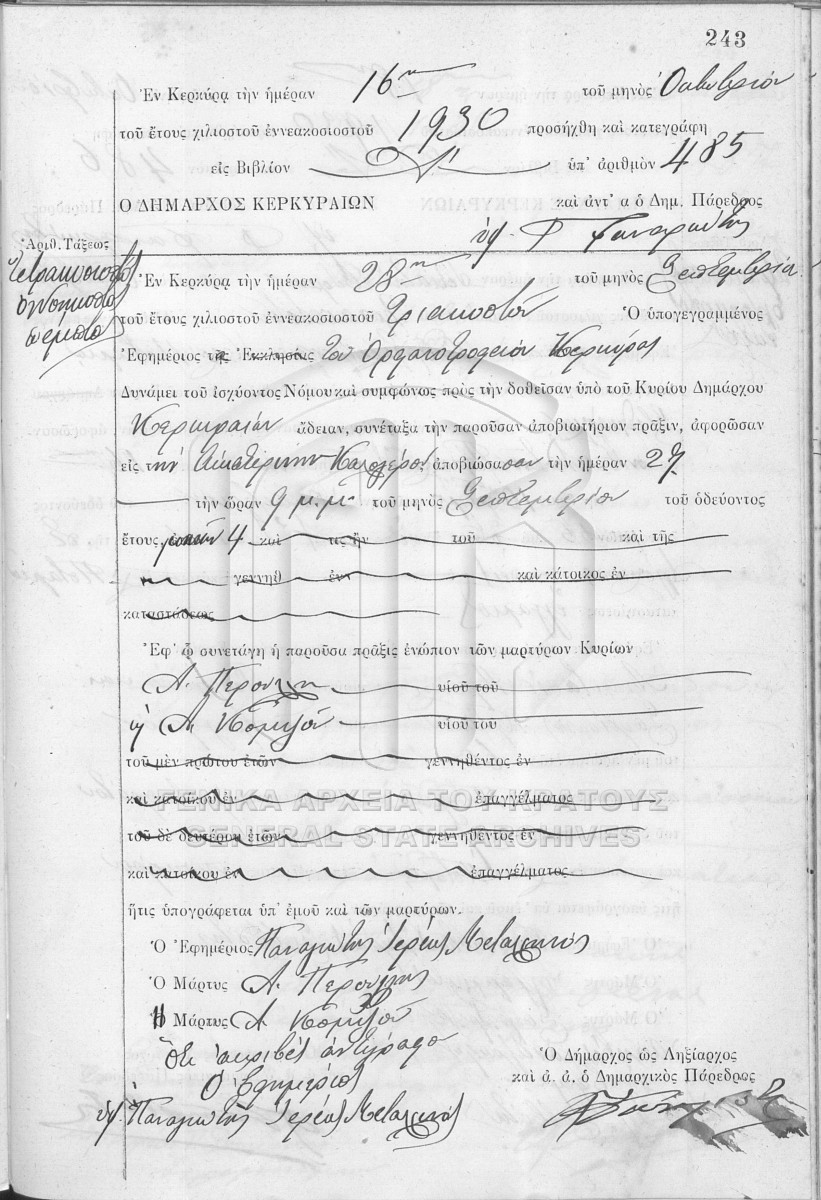 243
Ἐν Κερκύρᾳ τὴν ἡμέραν 16ην τοῦ μηνὸς Ὀκτωβρίου
τοῦ ἔτους χιλιοστοῦ ἐννεακοσιοστοῦ 1930 προσήχθη καὶ κατεγράφη
εἰς Βιβλίον Α' ὑπ' ἀριθμὸν 485
Ο ΔΗΜΑΡΧΟΣ ΚΕΡΚΥΡΑΙΩΝ καὶ ἀντ' α ὁ Δημ. Πάρεδρος
ὑπ.
Ἀριθ. Τάξεως
Τετρακοσιοστὸς
ὀγδοηκοστὸς
πέμπτος
Ἐν Κερκύρᾳ τὴν ἡμέραν 28ην τοῦ μηνὸς Σεπτεμβρίου
τοῦ ἔτους χιλιοστοῦ ἐννεακοσιοστοῦ τριακοστοῦ Ὁ ὑπογεγραμμένος
Ἐφημέριος τῆς Ἐκκλησίας τοῦ Ὀρφανοτροφείου Κερκύρας
Δυνάμει τοῦ ἰσχύοντος Νόμου καὶ συμφώνως πρὸς τὴν δοθεῖσαν ὑπὸ τοῦ Κυρίου Δημάρχου
Κερκυραίων ἄδειαν, συνέταξα τὴν παροῦσαν ἀποβιωτήριον πρᾶξιν, ἀφορῶσαν
εἰς τὴν Αἰκατερίνην Καλογέρου ἀποβιώσασαν τὴν ἡμέραν 27
τὴν ὥραν 9 μ.μ. τοῦ μηνὸς Σεπτεμβρίου τοῦ ὁδεύοντος
ἔτους, 4 καὶ τις ἦν τοῦ καὶ τῆς
γεννηθ ἐν καὶ κάτοικος ἐν
καταστάσεως
Ἐφ' ᾧ συνετάγη ἡ παροῦσα πρᾶξις ἐνώπιον τῶν μαρτύρων Κυρίων
Α. υἱοῦ τοῦ
ἡ Α. υἱοῦ τοῦ
τοῦ μὲν πρώτου ἐτῶν γεννηθέντος ἐν
καὶ κατοίκου ἐν ἐπαγγέλματος
ΓΕΝΙΚΑ ΑΡΧΕΙΑ ΤΟΥ ΚΡΑΤΟΥΣ
GENERAL STATE ARCHIVES
τοῦ δὲ δευτέρου ἐτῶν γεννηθέντος ἐν
καὶ κατοίκου ἐν ἐπαγγέλματος
ἥτις ὑπογράφεται ὑπ' ἐμοῦ καὶ τῶν μαρτύρων.
Ὁ Ἐφημέριος Παναγιώτης Ἱερεὺς Μεταλληνός
Ὁ Μάρτυς Α.
Ἡ Μάρτυς Α.
Ὅτι ἀκριβὲς ἀντίγραφο
Ὁ Ἐφημέριος
ὑπ. Παναγιώτης Ἱερεὺς Μεταλληνός
Ὁ Δήμαρχος ὡς Ληξίαρχος
καὶ ἀ. ἀ. ὁ Δημαρχικὸς Πάρεδρος